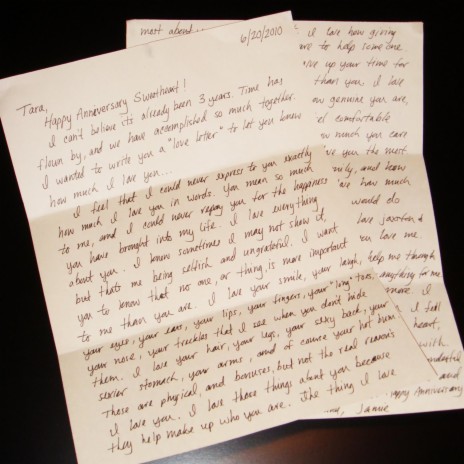 6/20/2010
Tara,
Happy Anneversary Sweetheart!
I can't believe its already been 3 years. Time has
flown by, and we have accomplished so much together.
I wanted to write you a "love letter" to let you know
how much I love you...
I feel that I could never express to you exactly
how much I love you in words. You mean so much
to me, and I could never repay you for the happiness
you have brought into my life. I love everything
about you. I know sometimes I may not show it,
but thats me being selfish and ungrateful. I want
you to know that no one, or thing, is more important
to me than you are. I love your smile, your laugh,
your eyes, your ears, your lips, your fingers, your "long" toes,
your nose, your freckles that I see when you don't hide
them. I love your hair, your legs, your sexy back, your
sexier stomach, your arms, and of cource your hot buns
These are physical, and bonuses, but not the real reasons
I love you. I love those things about you because
they help make up who you are. The thing I love
most about
I love how giving
are to help someone.
ve up your time for
than you. I love
ow genuine you are,
el comfortable
ow much you care
ve you the most
and how
are how much
would do
love Jaxston &
ou love me.
help me through
anything for me
more I
I feel
heart,
with
and
Happy Anniversary
Jamie